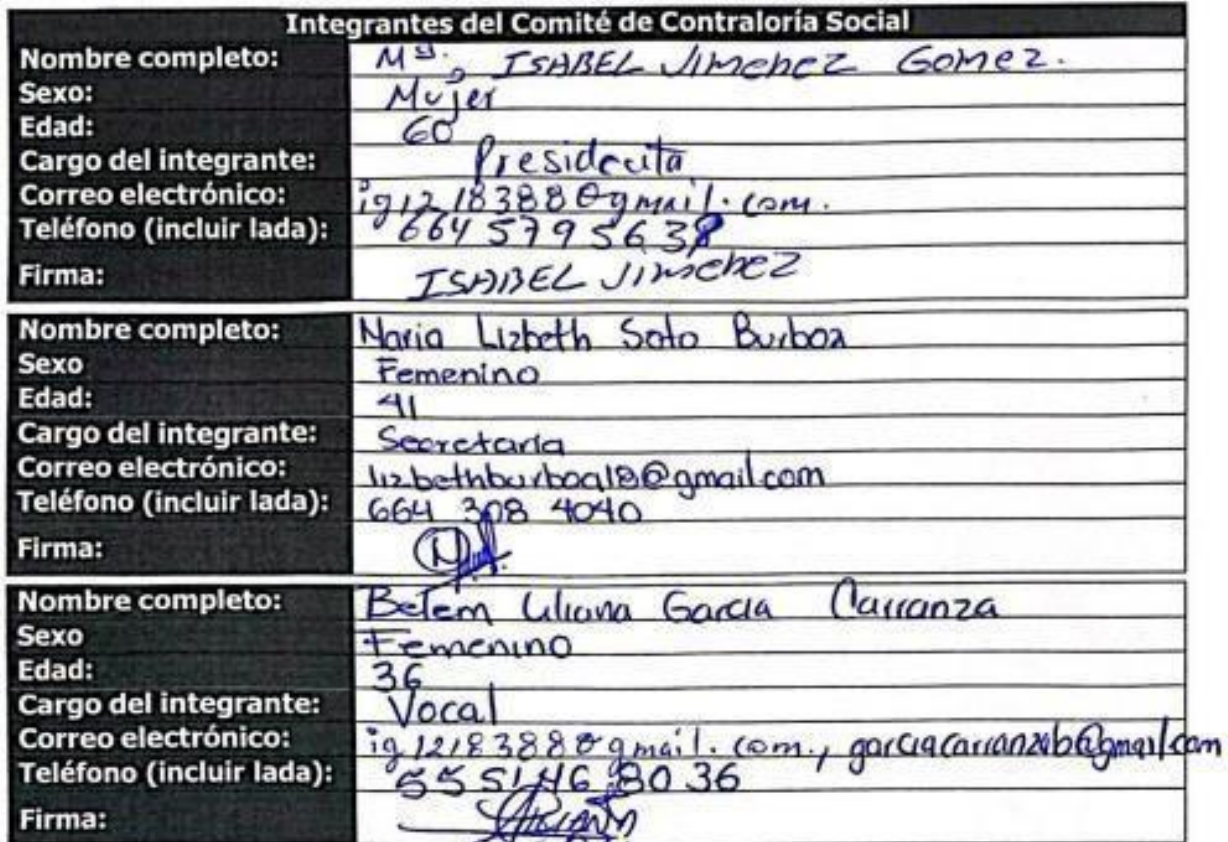 Integrantes del Comité de Contraloría Social
Nombre completo: Mª., ISABEL JIMENEZ GOMEZ.
Sexo: Mujer
Edad: 60
Cargo del integrante: Presidenta
Correo electrónico: ig1218388@gmail.com.
Teléfono (incluir lada): 664 579 563
Firma: ISABEL JIMENEZ
Nombre completo: Maria Lizbeth Soto Burboa
Sexo Femenino
Edad: 41
Cargo del integrante: Secretaria
Correo electrónico: lizbethburboa18@gmail.com
Teléfono (incluir lada): 664 308 4040
Firma:
Nombre completo: Belem Liliana Garcia Carranza
Sexo Femenino
Edad: 36
Cargo del integrante: Vocal
Correo electrónico: ig1218388@gmail.com., garciacarranzab@gmail.com
Teléfono (incluir lada): 55 5146 8036
Firma: